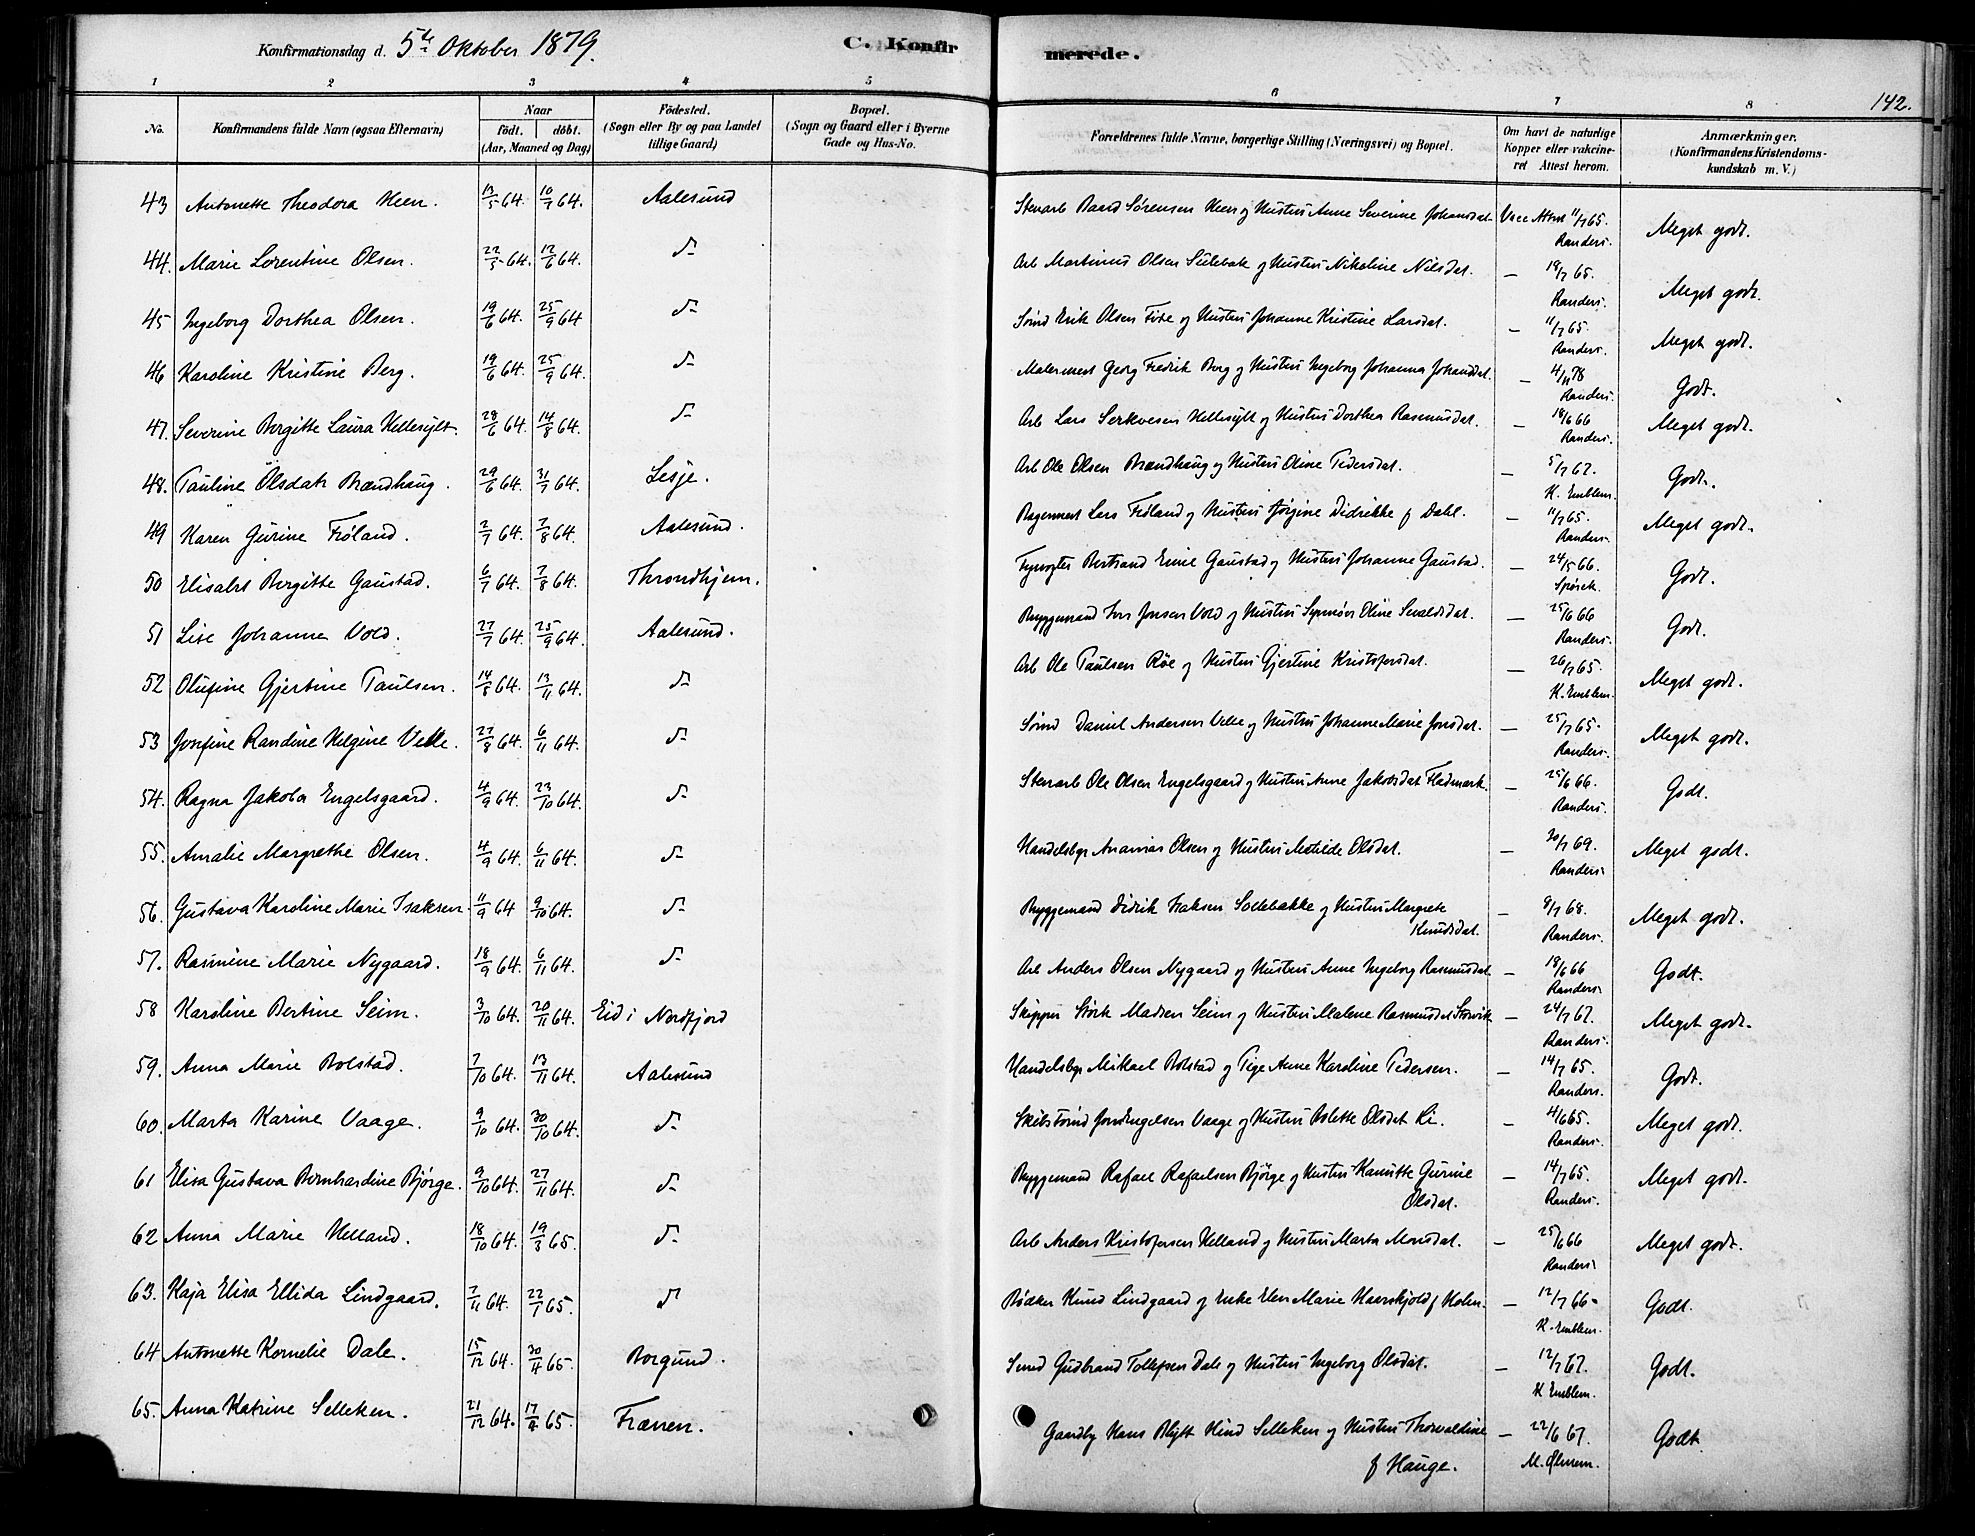 Konfirmationsdag d. 5te Oktober 1879.
C. Konfir
merede.
142.
1 2 3 4 5 6 7 8
No. Konfirmandens fulde Navn (ogsaa Efternavn) Naar födt. döbt. (Aar, Maaned og Dag) Födested. (Sogn eller By og paa Landet tillige Gaard) Bopæl. (Sogn og Gaard eller i Byerne Gade og Hus-No. Forældrenes fulde Navne, borgerlige Stilling (Næringsvei) og Bopæl. Om havt de naturlige Kopper eller vakcineret Attest herom. Anmærkninger. (Konfirmandens Kristendomskundskab m. V.)
43 Antonette Theodora Heen. 13/5 64. 10/7 64. Aalesund Stenarb Baard Sörensen Heen og Hustru Anne Severine Johansdat. Vacc Attest 11/7 65. Randers. Meget godt.
44. Marie Lorentine Olsen. 22/5 64. 12/6 64. do Arb Martinus Olsen Sulebak og Hustru Nikoline Nilsdat. – 19/7 65. Randers. Meget godt.
45 Ingeborg Dorthea Olsen. 19/6 64. 25/9 64 do Sömd Erik Olsen Fise og Hustru Johanne Kristine Larsdat. – 11/7 65. Randers. Meget godt.
46 Karoline Kristine Berg. 19/6 64. 25/9 64. do Malermest Georg Fredrik Berg og Hustru Ingeborg Johanna Johansdat. – 4/11 78 Randers. Godt.
47. Severine Bergitte Laura Hellesylt. 28/6 64. 14/8 64. do Arb Lars Serkvesen Hellesylt og Hustru Dorthea Rasmusdat. – 18/6 66 Randers. Meget godt.
48. Pauline Olsdatr Brændhaug. 29/6 64. 31/7 64. Lesje. Arb Ole Olsen Brændhaug og Hustru Oline Pedersdat. – 5/7 67. K. Emblem. Godt.
49 Karen Gurine Fröland. 2/7 64. 7/8 64. Aalesund. Bagermest Lars Fröland og Hustru Jörgine Didrikke f Dahl. – 11/7 65. Randers. Meget godt.
50 Elisabet Bergitte Gaustad. 6/7 64. 7/8 64. Throndhjem. Fyrvogter Bertrand Enne Gaustad og Hustru Johanne Gaustad. – 24/5 66. Godt.
51 Lise Johanne Vold. 27/7 64. 25/9 64. Aalesund. Byggemand Iver Jonsen Vold og Hustru Synnöve Oline Sevaldsdat. – 25/6 66 Randers. Godt.
52 Olufine Gjertine Paulsen. 14/8 64. 13/11 64. do Arb Ole Paulsen Röe og Hustru Gjertine Kristofersdat. – 26/7 65. K. Emblem. Meget godt.
53 Josefine Randine Helgine Velle. 27/8 64. 6/11 64. do Sömd Daniel Andersen Velle og Hustru Johanne Marie Jonsdat. – 25/7 65. Randers. Meget godt.
54. Ragna Jakoba Engelsgaard. 4/9 64. 23/10 64. do Stenarb Ole Olsen Engelsgaard og Hustru Anne Jakobsdat Fladmark. – 25/6 66. Randers. Godt.
55. Amalie Margrethe Olsen. 4/9 64. 6/11 64. do Handelsbgr Ananias Olsen og Hustru Matilde Olsdat. – 20/7 69. Randers. Meget godt.
56. Gustava Karoline Marie Isaksen. 11/9 64 9/10 64. do Byggemand Didrik Isaksen Sollebakke og Hustru Margrete Knudsdat. – 9/7 68. Randers. Meget godt.
57. Rasmine Marie Nygaard. 18/9 64. 6/11 64. do Arb Anders Olsen Nygaard og Hustru Anne Ingeborg Rasmusdat. – 18/6 66 Randers. Godt.
58 Karoline Bertine Seim. 3/10 64. 20/11 64. Eid i Nordfjord Skipper Störk Madsen Seim og Hustru Malene Rasmusdat Storvik – 24/7 67. Randers. Meget godt.
59. Anna Marie Bolstad. 7/10 64. 13/11 64. Aalesund Handelsbgr Mikael Bolstad og Pige Anne Karoline Pedersen. – 14/7 65. Randers. Godt.
60. Marta Karine Vaage. 9/10 64. 30/10 64. do Skibstömd Jon Engelsen Vaage og Hustru Bolette Olsdat Ri. – 4/6 65. Randers. Meget godt.
61 Elisa Gustava Bernhardine Björge. 9/10 64. 27/11 64. do Byggemand Rafael Rafaelsen Björge og Hustru Kanutte Gurine Olsdat. – 14/7 65. Randers. Meget godt.
62 Anna Marie Helland. 18/10 64. 19/3 65. do Arb Anders Kristofersen Helland og Hustru Marta Monsdat. – 25/6 66 Randers. Meget godt.
63. Kaja Elisa Ellida Lindgaard. 7/11 64. 22/1 65. do Bödker Knud Lindgaard og Enke Elen Marie Haverskjold f Holm. – 12/7 66. K. Emblem. Godt.
64 Antonette Kornelie Dale. 15/12 64. 30/4 65. Borgund. Smed Gudbrand Tollefsen Dale og Hustru Ingeborg Olsdat. – 12/7 67. K Emblem. Godt.
65. Anna Katrine Selleken. 21/12 64. 17/4 65. Frænen. Gaardbr Hans Blytt Kind Selleken og Hustru Thorvaldine f Hauge. – 22/6 67. Godt.